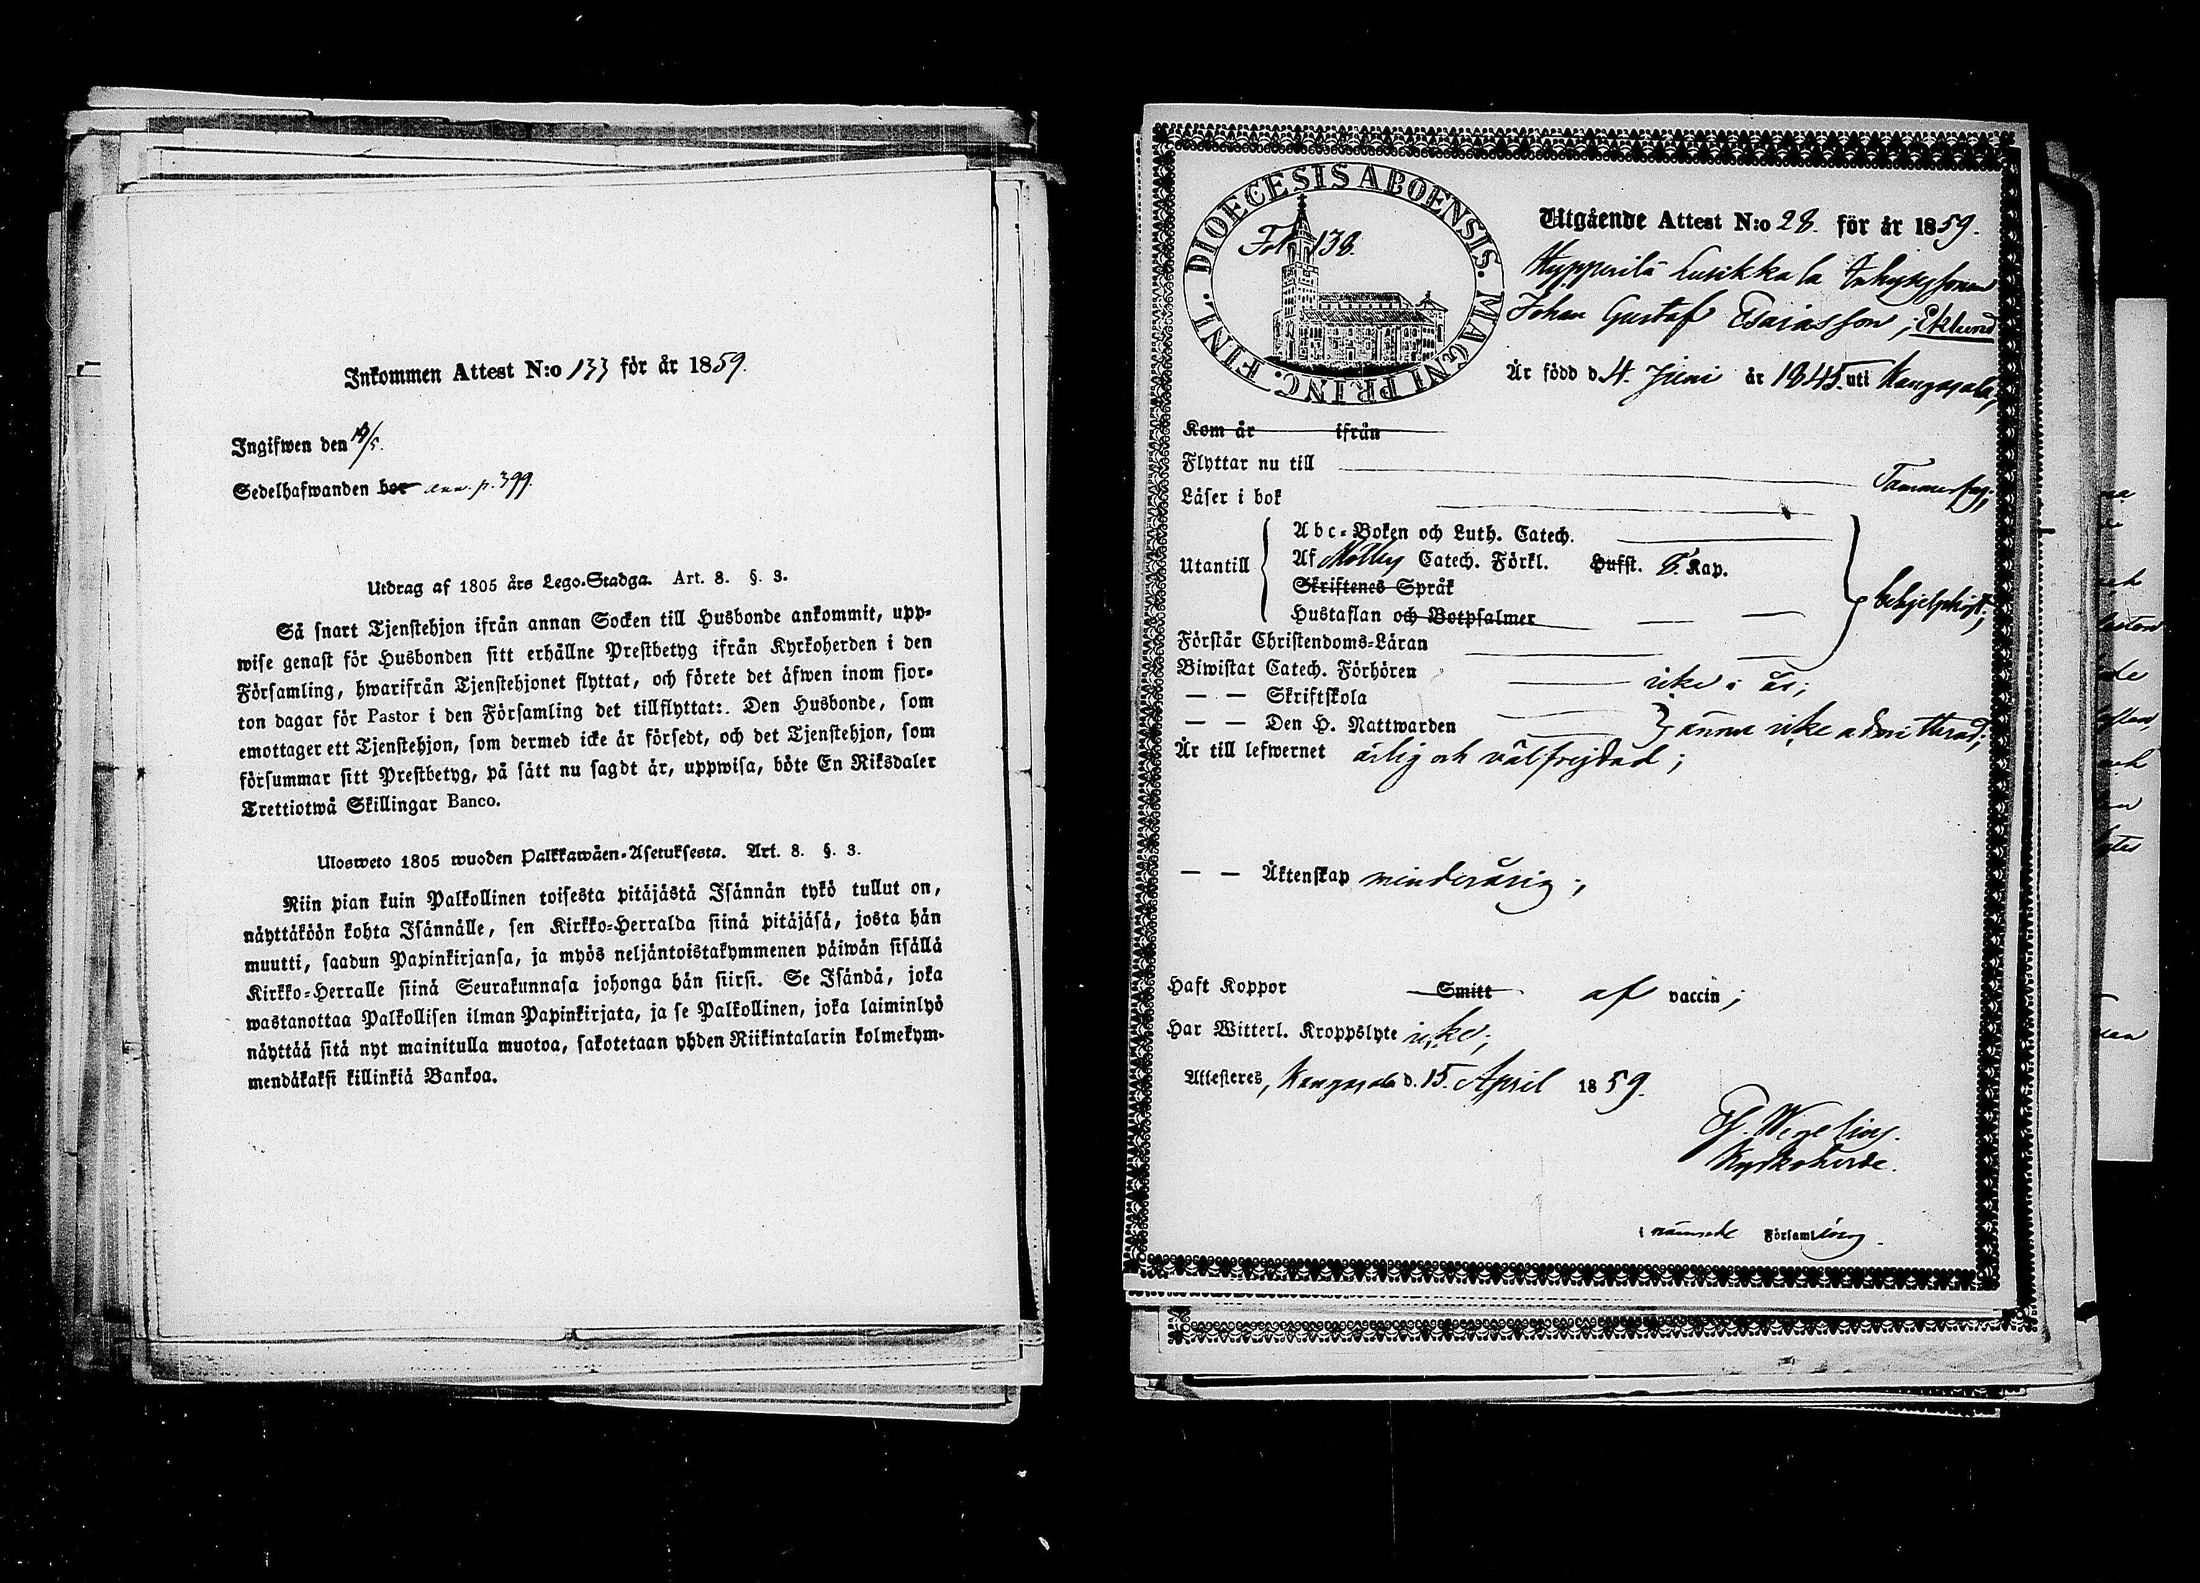 Inkommen Attest N:o 133 för år 1859.
Ingifwen den 19/5.
Sedelhafwanden bor ann. p. 399.
Utdrag af 1805 års Lego-Stadga. Art. 8. §. 3.
Så snart Tjenstehjon ifrån annan Socken till Husbonde ankommit, upp-
wise genast för Husbonden sitt erhållne Prestbetyg ifrån Kyrkoherden i den
Församling, hwarifrån Tjenstehjonet flyttat, och förete det äfwen inom fjor-
ton dagar för Pastor i den Församling det tillflyttat:. Den Husbonde, som
emottager ett Tjenstehjon, som dermed icke är försedt, och det Tjenstehjon, som
försummar sitt Prestbetyg, på sätt nu sagdt är, uppwisa, böte En Riksdaler
Trettiotwå Skillingar Banco.
Ulosweto 1805 wuoden Palkkawäen-Asetuksesta. Art. 8. §. 3.
Niin pian kuin Palkollinen toisesta pitäjästä Isännän tykö tullut on,
näyttäköön kohta Isännälle, sen Kirkko-Herralda siinä pitäjäsä, josta hän
muutti, saadun Papinkirjansa, ja myös neljäntoistakymmenen päiwän sisällä
Kirkko-Herralle siinä Seurakunnasa johonga hän siirsi. Se Isändä, joka
wastanottaa Palkollisen ilman Papinkirjata, ja se Palkollinen, joka laiminlyö
näyttää sitä nyt mainitulla muotoa, sakotetaan yhden Riikintalarin kolmekym-
mendäkaksi killinkiä Bankoa.
DIOECESIS ABOENSIS. MAGNI PRINC. FINL.
Fol. 138.
Utgående Attest N:o 28. för år 1859.
Hypperilä Lusikkala
Johan Gustaf Esaiasson, Eklund
Är född d. 4. Juni år 1845. uti Kangasala;
Kom år ifrån
Flyttar nu till Tammerfors;
Läser i bok
Abc-Boken och Luth. Catech.
Utantill Af Möllers Catech. Förkl. Hufst. 8. Kap.
Skriftenes Språk
Hustaflan och Botpsalmer
behjelpligt;
Förstår Christendoms-Läran
Biwistat Catech. Förhören icke i år;
— — Skriftskola
— — Den H. Nattwarden ännu icke admitterad;
Är till lefwernet ärlig och välfrejdad;
— — Äktenskap minderårig;
Haft Koppor Smitt af vaccin;
Har Witterl. Kroppslyte icke;
Attesteres, Kangasala d. 15. April 1859.
Kyrkoherde.
i nämnde Församling.